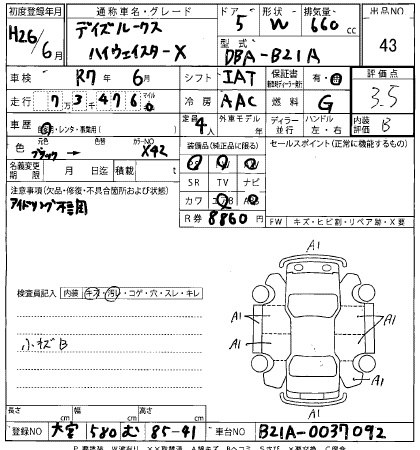 初度登録年月 通称車名・グレード ドア 形状 排気量 出品NO
H26/6月 デイズルークス ハイウェイスターX 5 W 660cc 43
型式 DBA-B21A
車検 R7年 6月 シフト IAT 保証書 有・無 評価点
走行 7万3千476 マイル 冷房 AAC 燃料 G 3.5
車歴 自家用・レンタ・事業用( ) 定員 4人 外車モデル 年 ディーラー 並行 ハンドル 左・右 内装評価 B
色 元色 ブラック → 色替 カラーNO X42 装備品(純正品に限る) セールスポイント(正常に機能するもの)
名義変更期限 月 日 積載 t SR TV ナビ
注意事項(欠品・修復・不具合箇所および状態) カワ エアB AW
アイドリング不調 R券 8860円 FW キズ・ヒビ割・リペア跡・X要
A1
検査員記入 内装 キズ・汚レ・コゲ・穴・スレ・キレ
A1 A1
小キズB A1
A1 A1
A1
長さ cm 幅 cm 高さ cm
登録NO 大宮 580 む 85-41 車台NO B21A-0037092